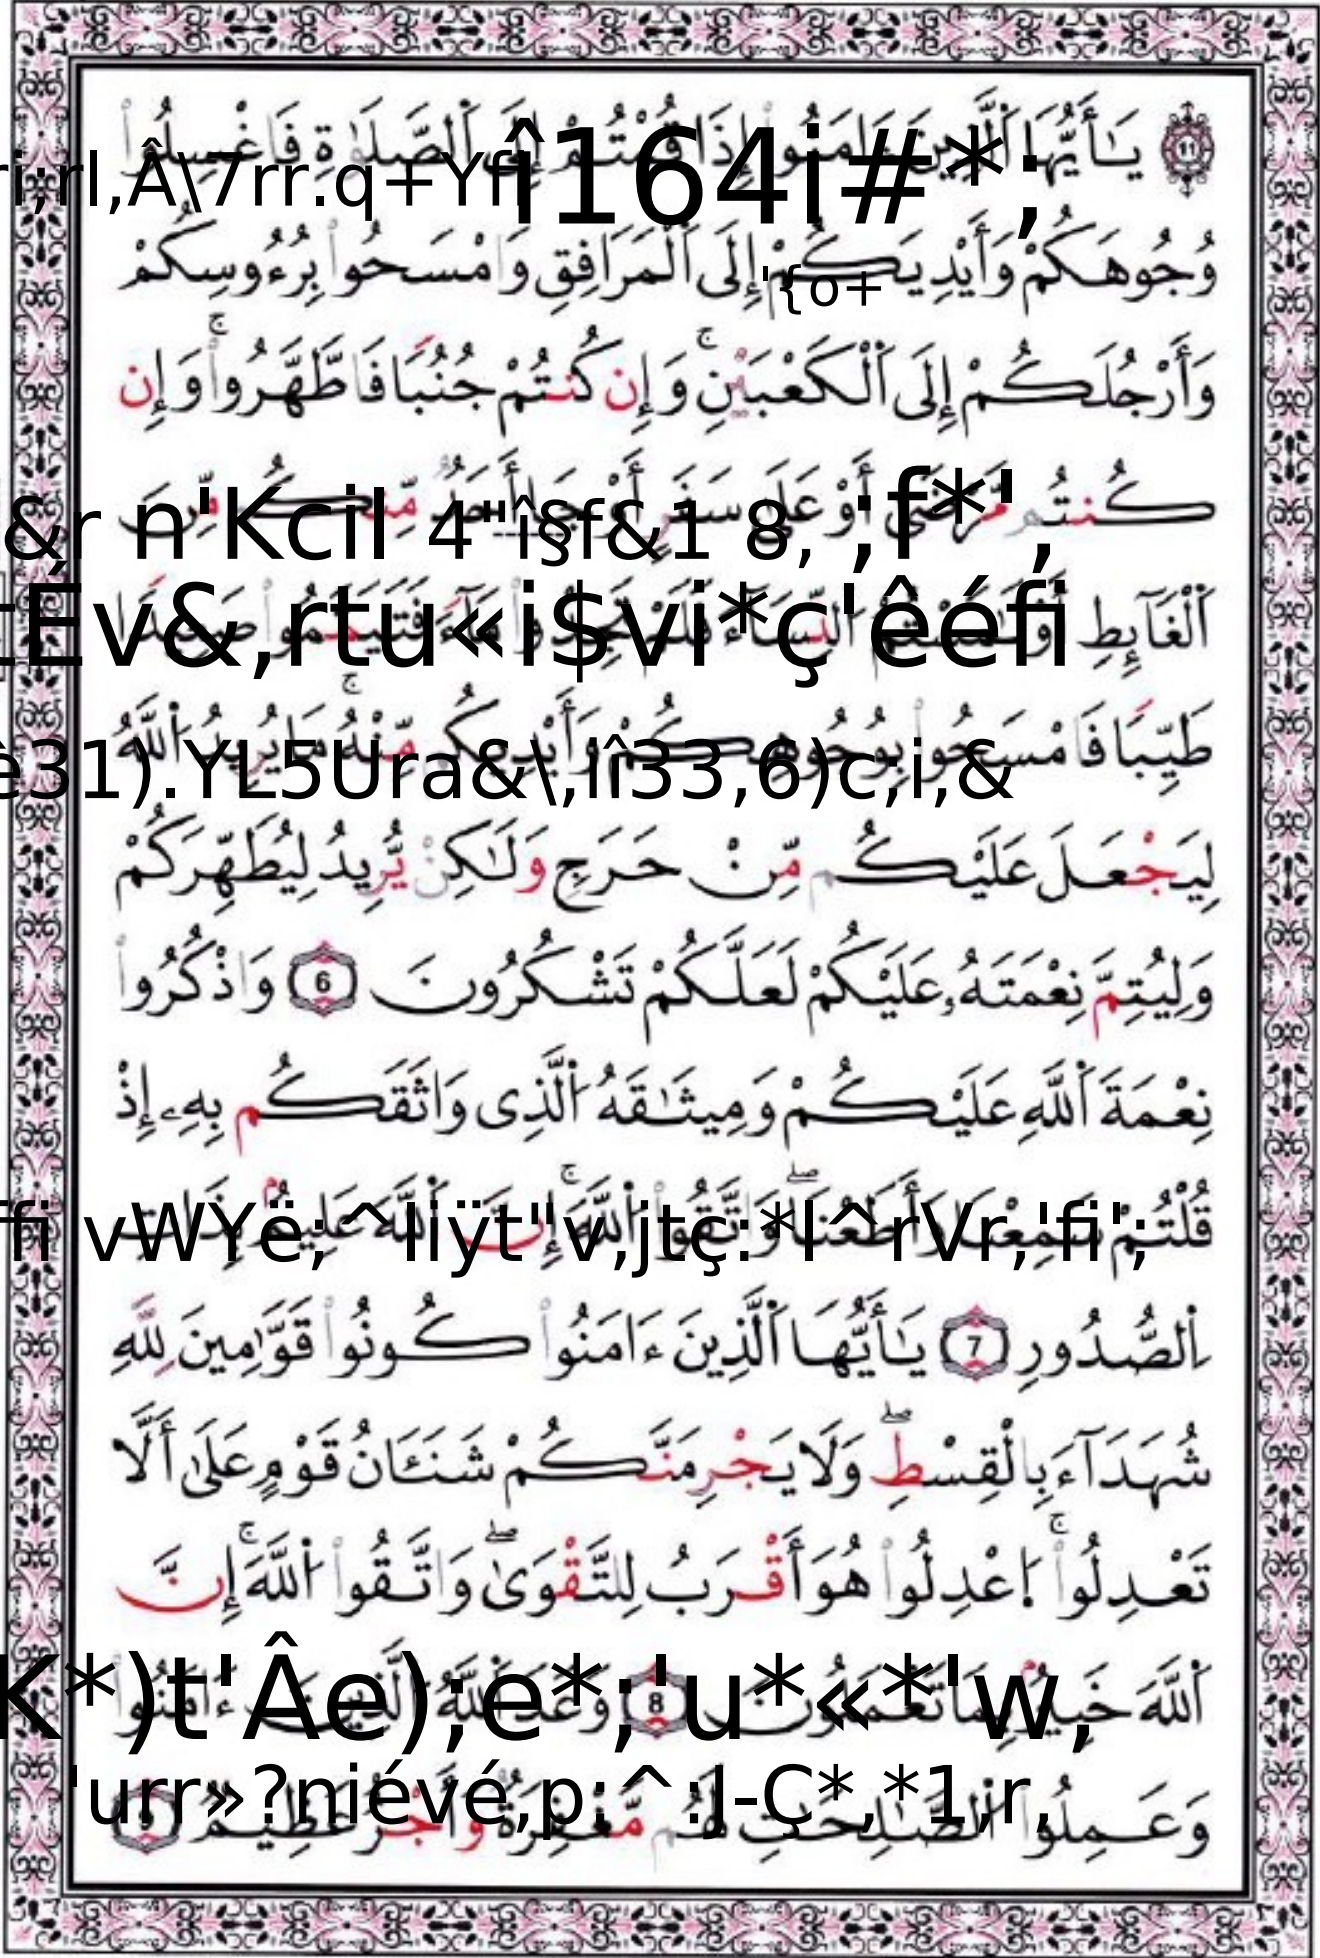 يَـٰٓأَيُّهَا ٱلَّذِينَ ءَامَنُوٓا۟ إِذَا قُمْتُمْ إِلَى ٱلصَّلَوٰةِ فَٱغْسِلُوا۟
ri;rl,Â\7rr.q+Yfi î164i#*;
وُجُوهَكُمْ وَأَيْدِيَكُمْ إِلَى ٱلْمَرَافِقِ وَٱمْسَحُوا۟ بِرُءُوسِكُمْ
'{o+
وَأَرْجُلَكُمْ إِلَى ٱلْكَعْبَيْنِ ۚ وَإِن كُنتُمْ جُنُبًا فَٱطَّهَّرُوا۟ ۚ وَإِن
كُنتُم مَّرْضَىٰٓ أَوْ عَلَىٰ سَفَرٍ أَوْ جَآءَ أَحَدٌ مِّنكُم مِّنَ
&r n'Kcil 4"î§f&1 8, ;f*',
ٱلْغَآئِطِ أَوْ لَـٰمَسْتُمُ ٱلنِّسَآءَ فَلَمْ تَجِدُوا۟ مَآءً فَتَيَمَّمُوا۟ صَعِيدًا
tÉv&,rtu«i$vi*ç'êéfi
طَيِّبًا فَٱمْسَحُوا۟ بِوُجُوهِكُمْ وَأَيْدِيكُم مِّنْهُ ۚ مَا يُرِيدُ ٱللَّهُ
è31).YL5Ura&\,iî33,6)c;i,&
لِيَجْعَلَ عَلَيْكُم مِّنْ حَرَجٍ وَلَـٰكِن يُرِيدُ لِيُطَهِّرَكُمْ
وَلِيُتِمَّ نِعْمَتَهُۥ عَلَيْكُمْ لَعَلَّكُمْ تَشْكُرُونَ 6 وَٱذْكُرُوا۟
نِعْمَةَ ٱللَّهِ عَلَيْكُمْ وَمِيثَـٰقَهُ ٱلَّذِى وَاثَقَكُم بِهِۦٓ إِذْ
قُلْتُمْ سَمِعْنَا وَأَطَعْنَا ۖ وَٱتَّقُوا۟ ٱللَّهَ ۚ إِنَّ ٱللَّهَ عَلِيمٌۢ بِذَاتِ
ffi vWYë;^liÿt"v,jtç:*l^rVr,'fi';
ٱلصُّدُورِ 7 يَـٰٓأَيُّهَا ٱلَّذِينَ ءَامَنُوا۟ كُونُوا۟ قَوَّٰمِينَ لِلَّهِ
شُهَدَآءَ بِٱلْقِسْطِ ۖ وَلَا يَجْرِمَنَّكُمْ شَنَـَٔانُ قَوْمٍ عَلَىٰٓ أَلَّا
تَعْدِلُوا۟ ۚ ٱعْدِلُوا۟ هُوَ أَقْرَبُ لِلتَّقْوَىٰ ۖ وَٱتَّقُوا۟ ٱللَّهَ ۚ إِنَّ
ٱللَّهَ خَبِيرٌۢ بِمَا تَعْمَلُونَ 8 وَعَدَ ٱللَّهُ ٱلَّذِينَ ءَامَنُوا۟
K*)t'Âe);e*;'u*«*'w,
وَعَمِلُوا۟ ٱلصَّـٰلِحَـٰتِ لَهُم مَّغْفِرَةٌ وَأَجْرٌ عَظِيمٌ
'urr»?niévé,p:^:J-C*,*1,r,